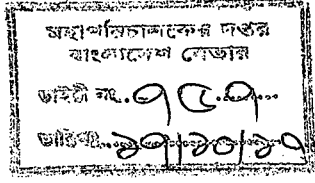 মহাপরিচালকের দপ্তর
বাংলাদেশ বেতার
ডাইরী নং..৭৫৭...
তারিখ...১৭/১০/১৭